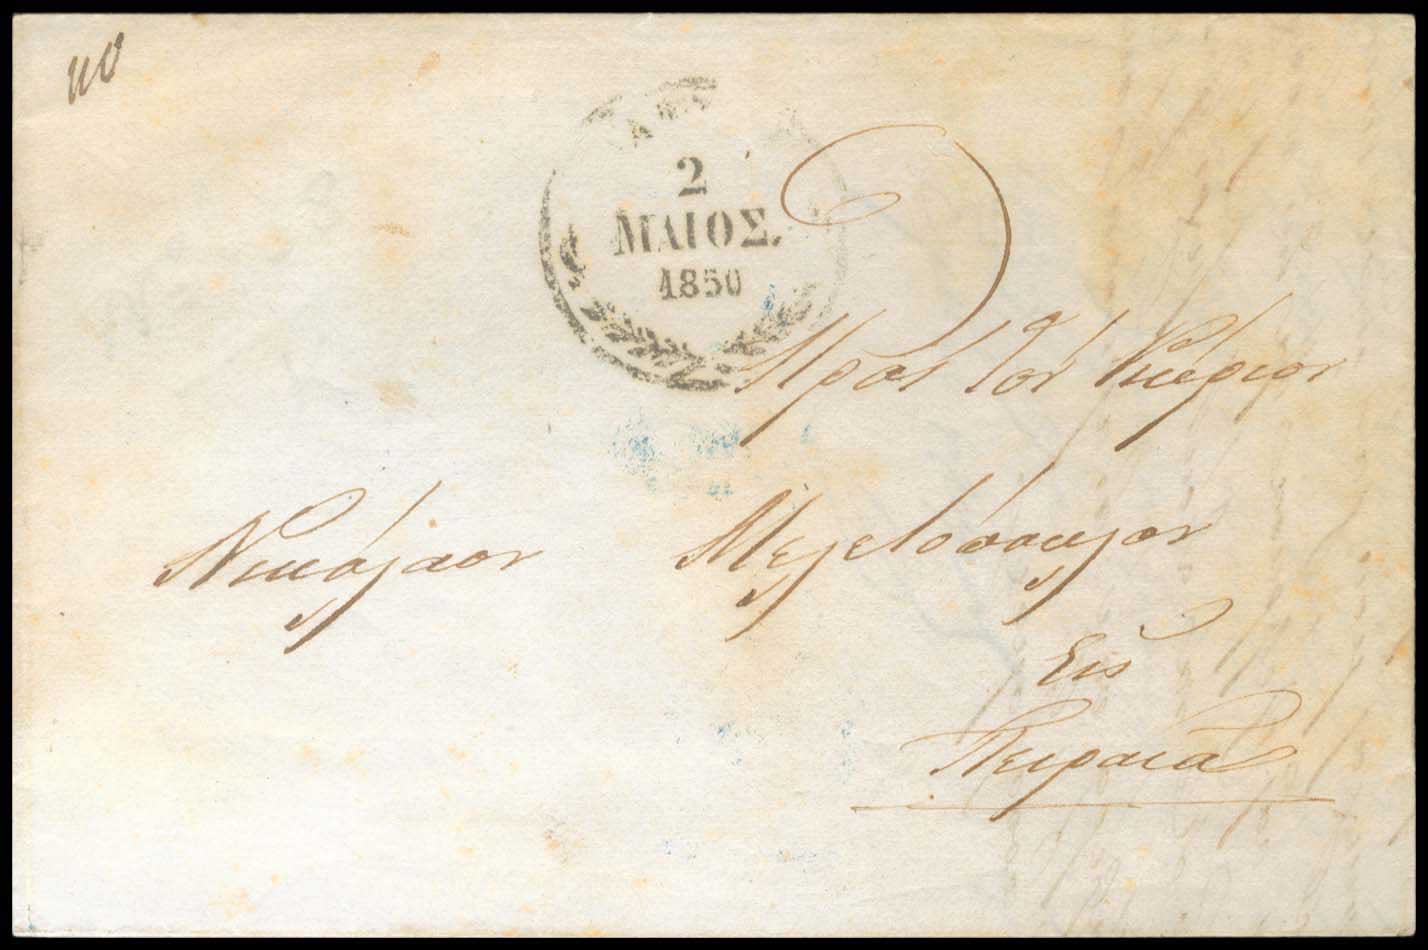 2
ΜΑΙΟΣ.
1850
Πρὸς τὸν Κύριον
Νικόλαον Μελετόπουλον
Εἰς
Πειραιᾶ